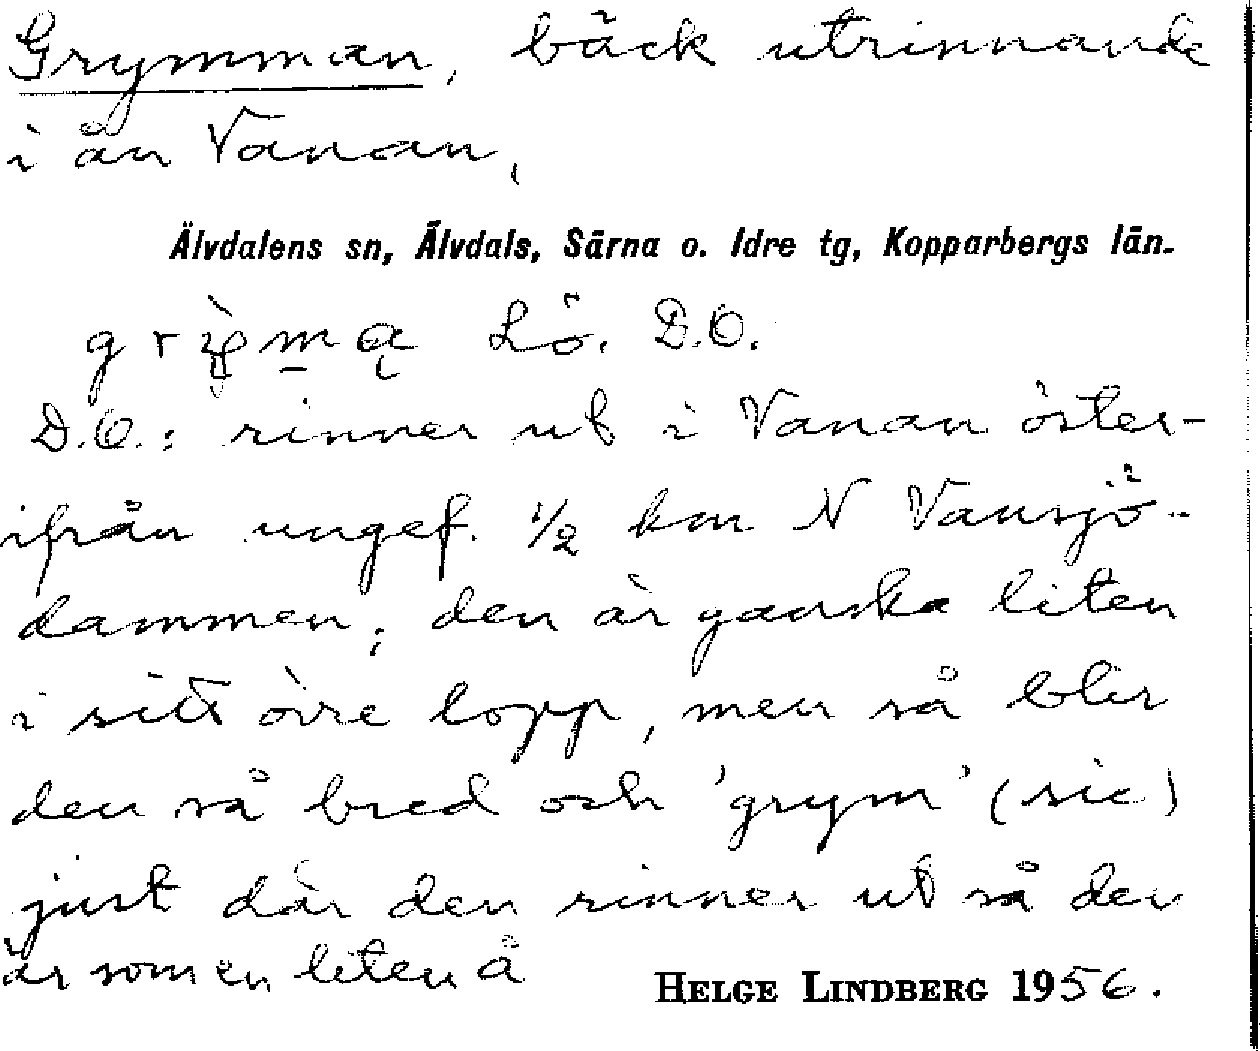 Grymman, bäck utrinnande
i ån Vanan,
Älvdalens sn, Älvdals, Särna o. Idre tg, Kopparbergs län.
Lö. D.O.
D.O.: rinner ut i Vanan öster-
ifrån ungef. 1/2 km N Vansjö-
dammen; den är ganska liten
i sitt övre lopp, men så blir
den så bred och 'grym' (sic)
just där den rinner ut så den
är som en liten å
HELGE LINDBERG 1956.